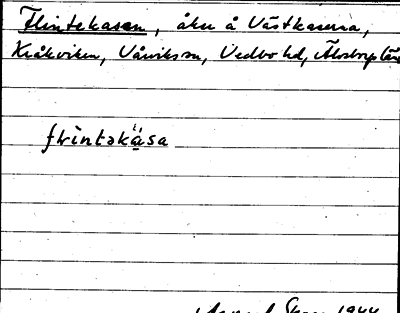 Flintekasen, åker å Västkaserna,
Kråkviken, Vårviks sn, Vedbo hd, Älvsborgs län
flìntəkä́sa
1944